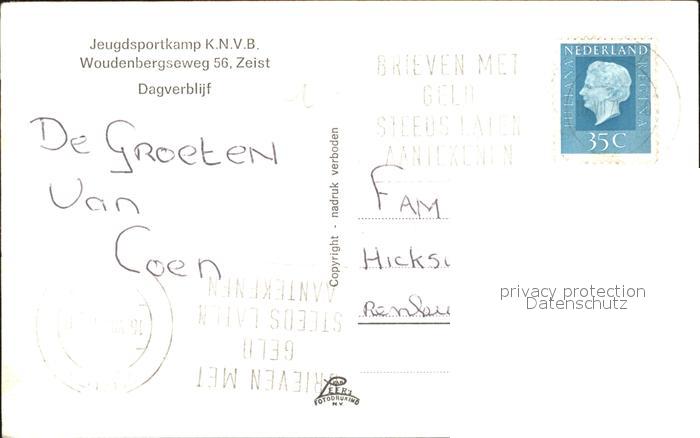 Jeugdsportkamp K.N.V.B.
Woudenbergseweg 56, Zeist
Dagverblijf
BRIEVEN MET
GELD
STEEDS LATEN
AANTEKENEN
NEDERLAND
JULIANA REGINA
35C
De GROETEN
Van
Coen
Copyright - nadruk verboden
FAM
privacy protection
Datenschutz
BRIEVEN MET
GELD
STEEDS LATEN
AANTEKENEN
FOTODRUKIND
N.V.